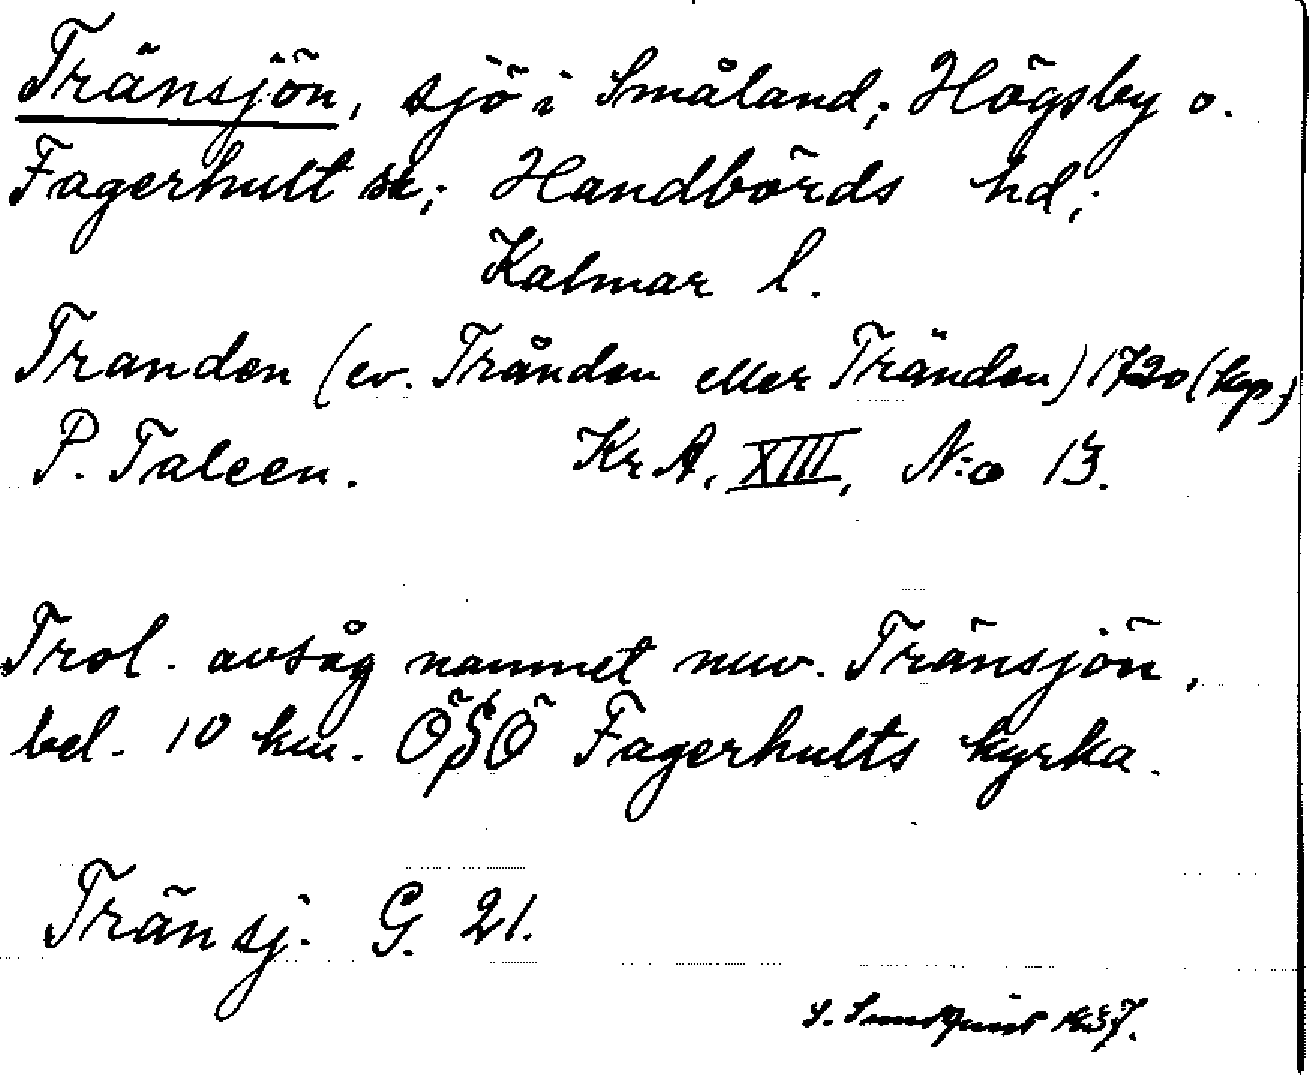 Tränsjön, sjö i Småland; Högsby o.
Fagerhult sk; Handbörds hd;
Kalmar l.
Tranden (ev. Trånden eller Tränden) 1720 (kop.)
P. Taleen. Kr.A. XIII, N:o 13.
Trol. avsåg namnet nuv. Tränsjön,
bel. 10 km. ÖSÖ Fagerhults kyrka.
Tränsj. G. 21.
S. Sundquist 1937.